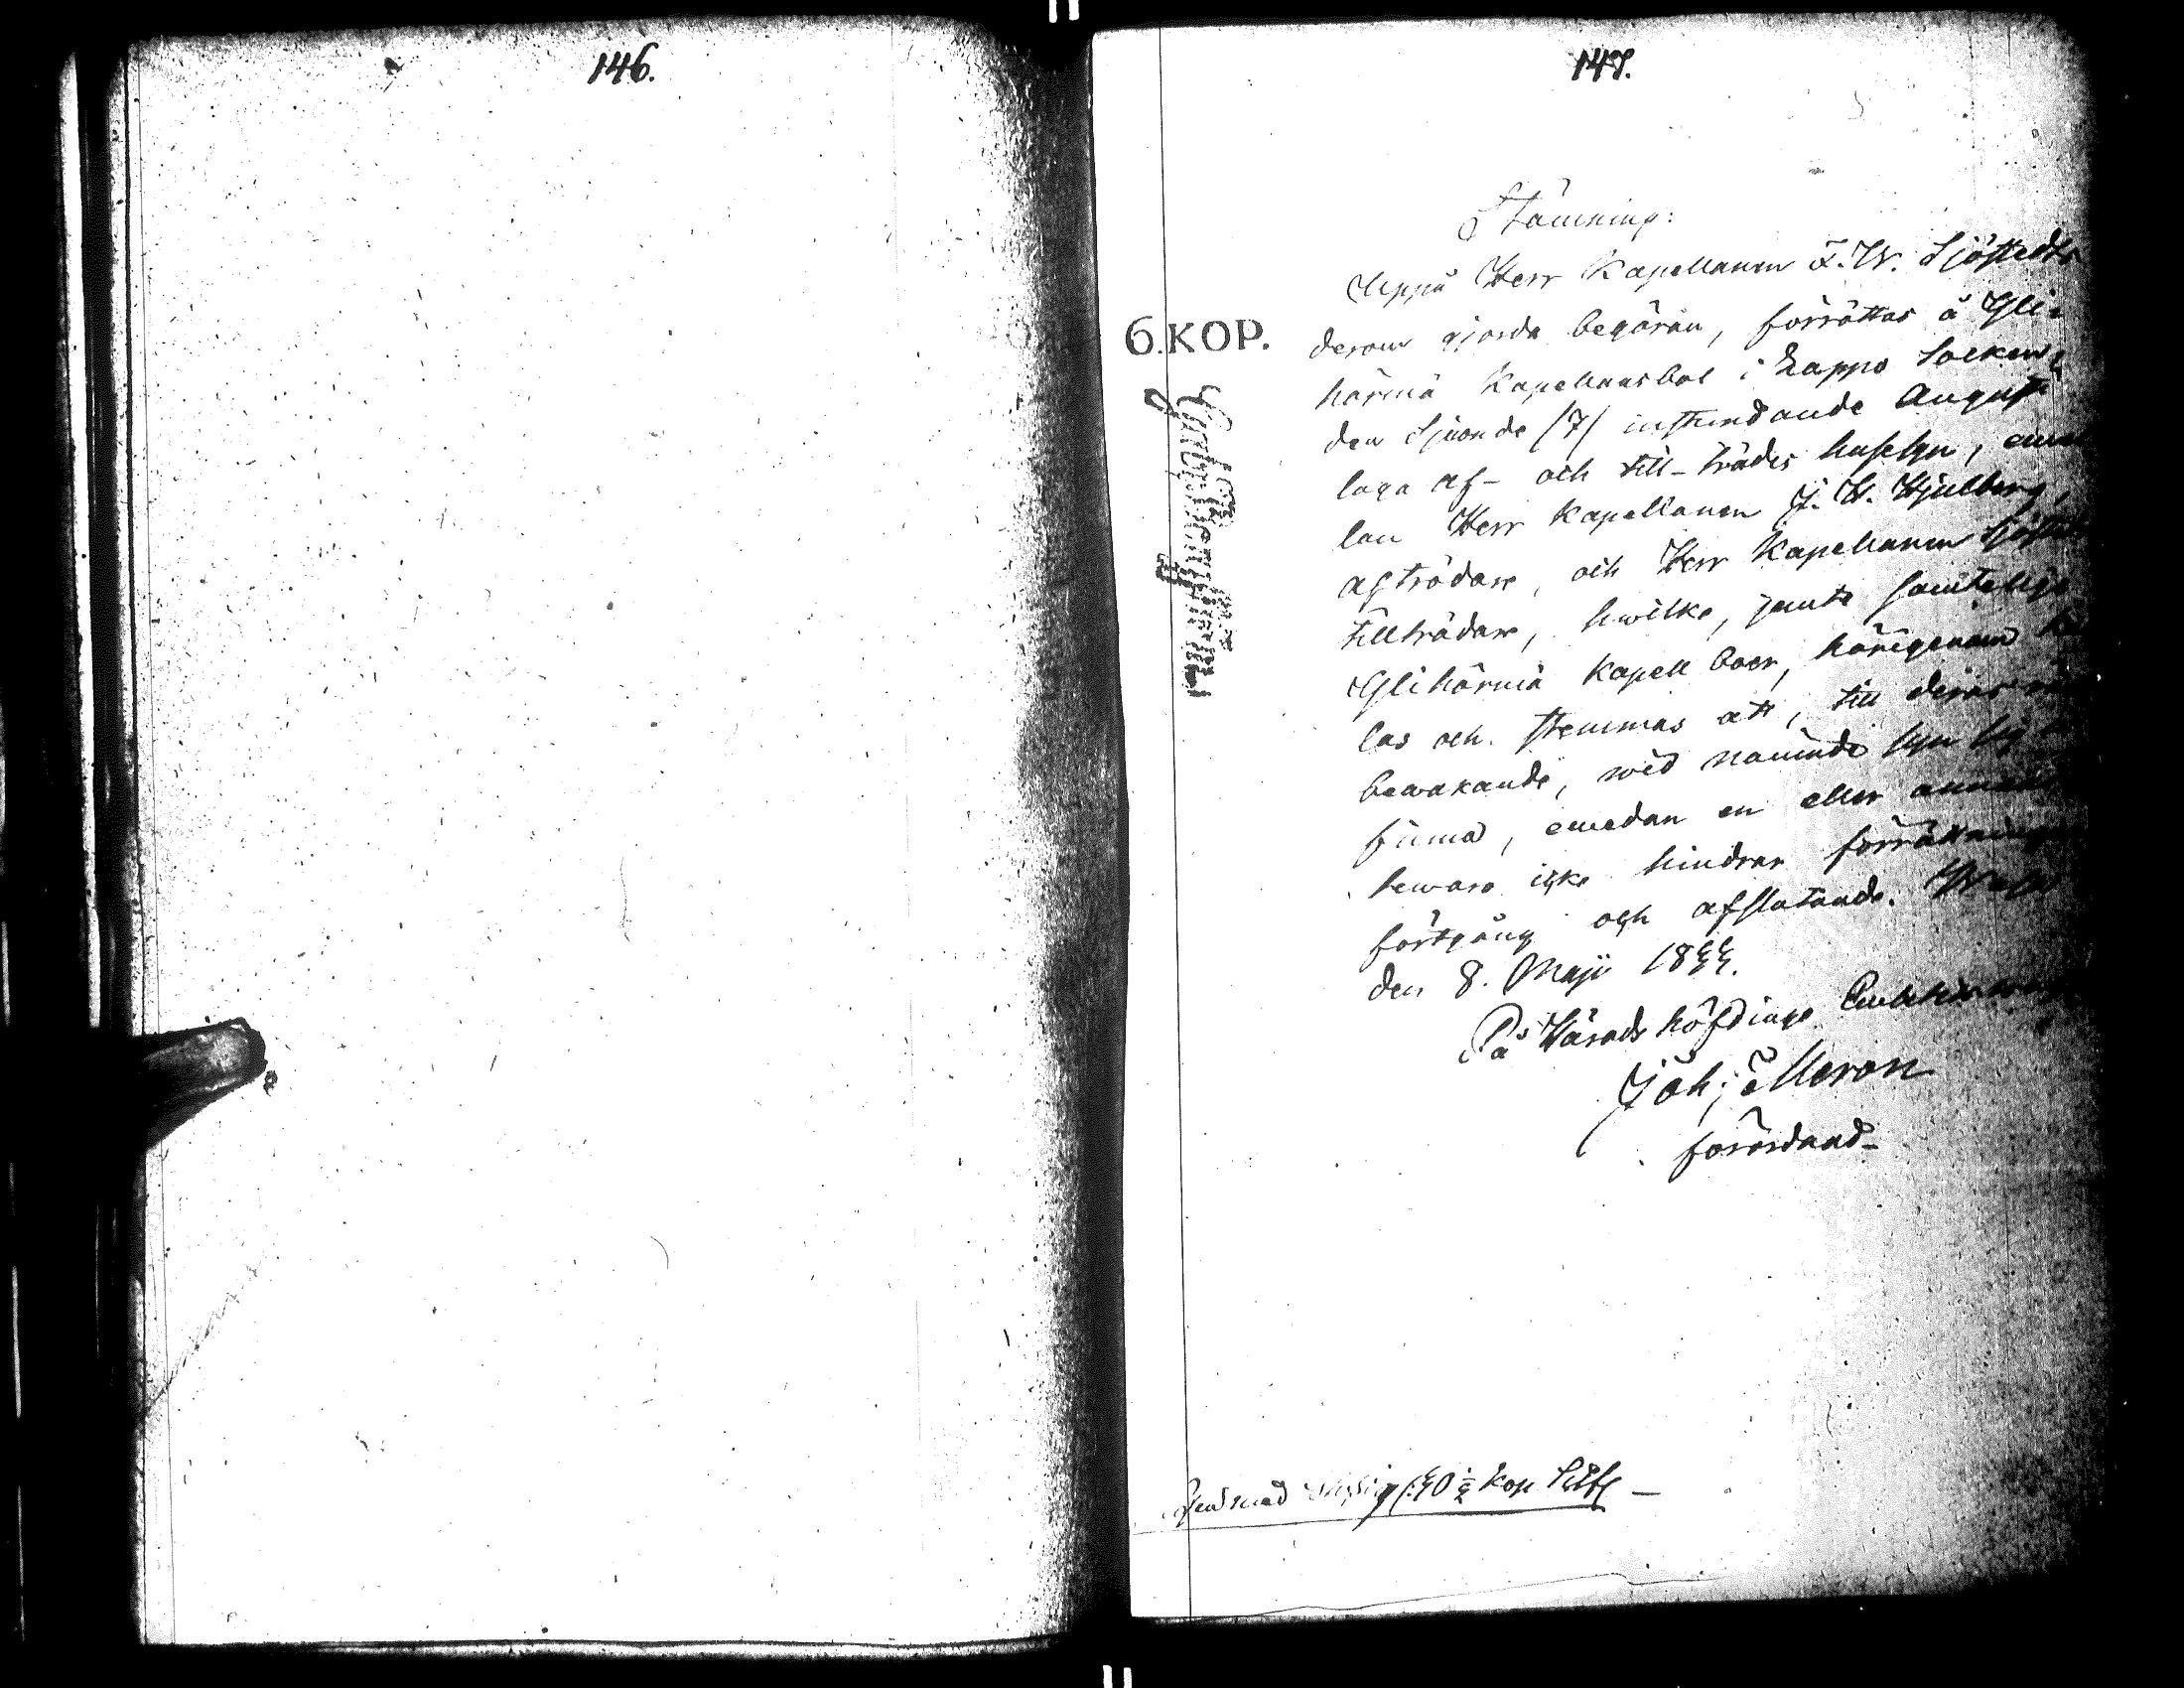 146.
147.
Stämning:
Uppå Herr Kapellanen F. W. Sjöstedts
6.KOP.
derom gjorda begäran, förrättas å Yli-
härmä Kapellansbol i Lappo Socken,
den Sjuonde /7/ instundande Augusti
laga af- och till-träds husesyn, emel
lan Herr Kapellanen J. W. Hjulberg,
afträdare, och Herr Kapellanen Sjöstedt
tillträdare, hwilke, jemte samtelige
Ylihärmä Kapell boer, härigenom
las och stemmas att, till deras
bewakande, wid nämnde syn sig
finna, emedan en eller annans
hewaro icke hindrar förrättningens
fortgång och afslutande. Wasa
den 8. Maji 1844.
På Härads höfdinge Embetets
Joh: Elleron
förordnad-
med 40 1/2 kop Silfr